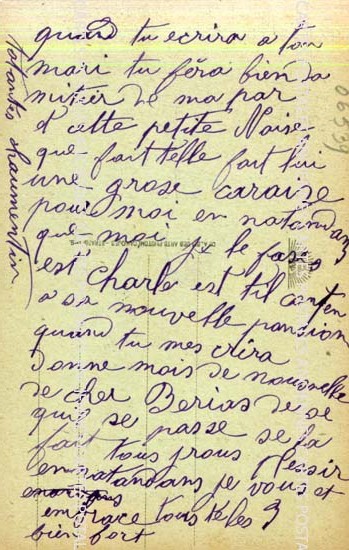 quand tu ecrira a ton
mari tu féra bien da
mitier de ma par
et cette petite Naise
que fait telle fait lui
une grose caraise
pour moi en natandan
que moi je le face
est Charle est til conten
a sa nouvelle pansion
quand tu mes crira
donne mois de nouvelle
de cher Berias de se
qui se passe se la
fait tous jrous plessir
en natandans je vous
embrace tous téles 3
bien fort
06539